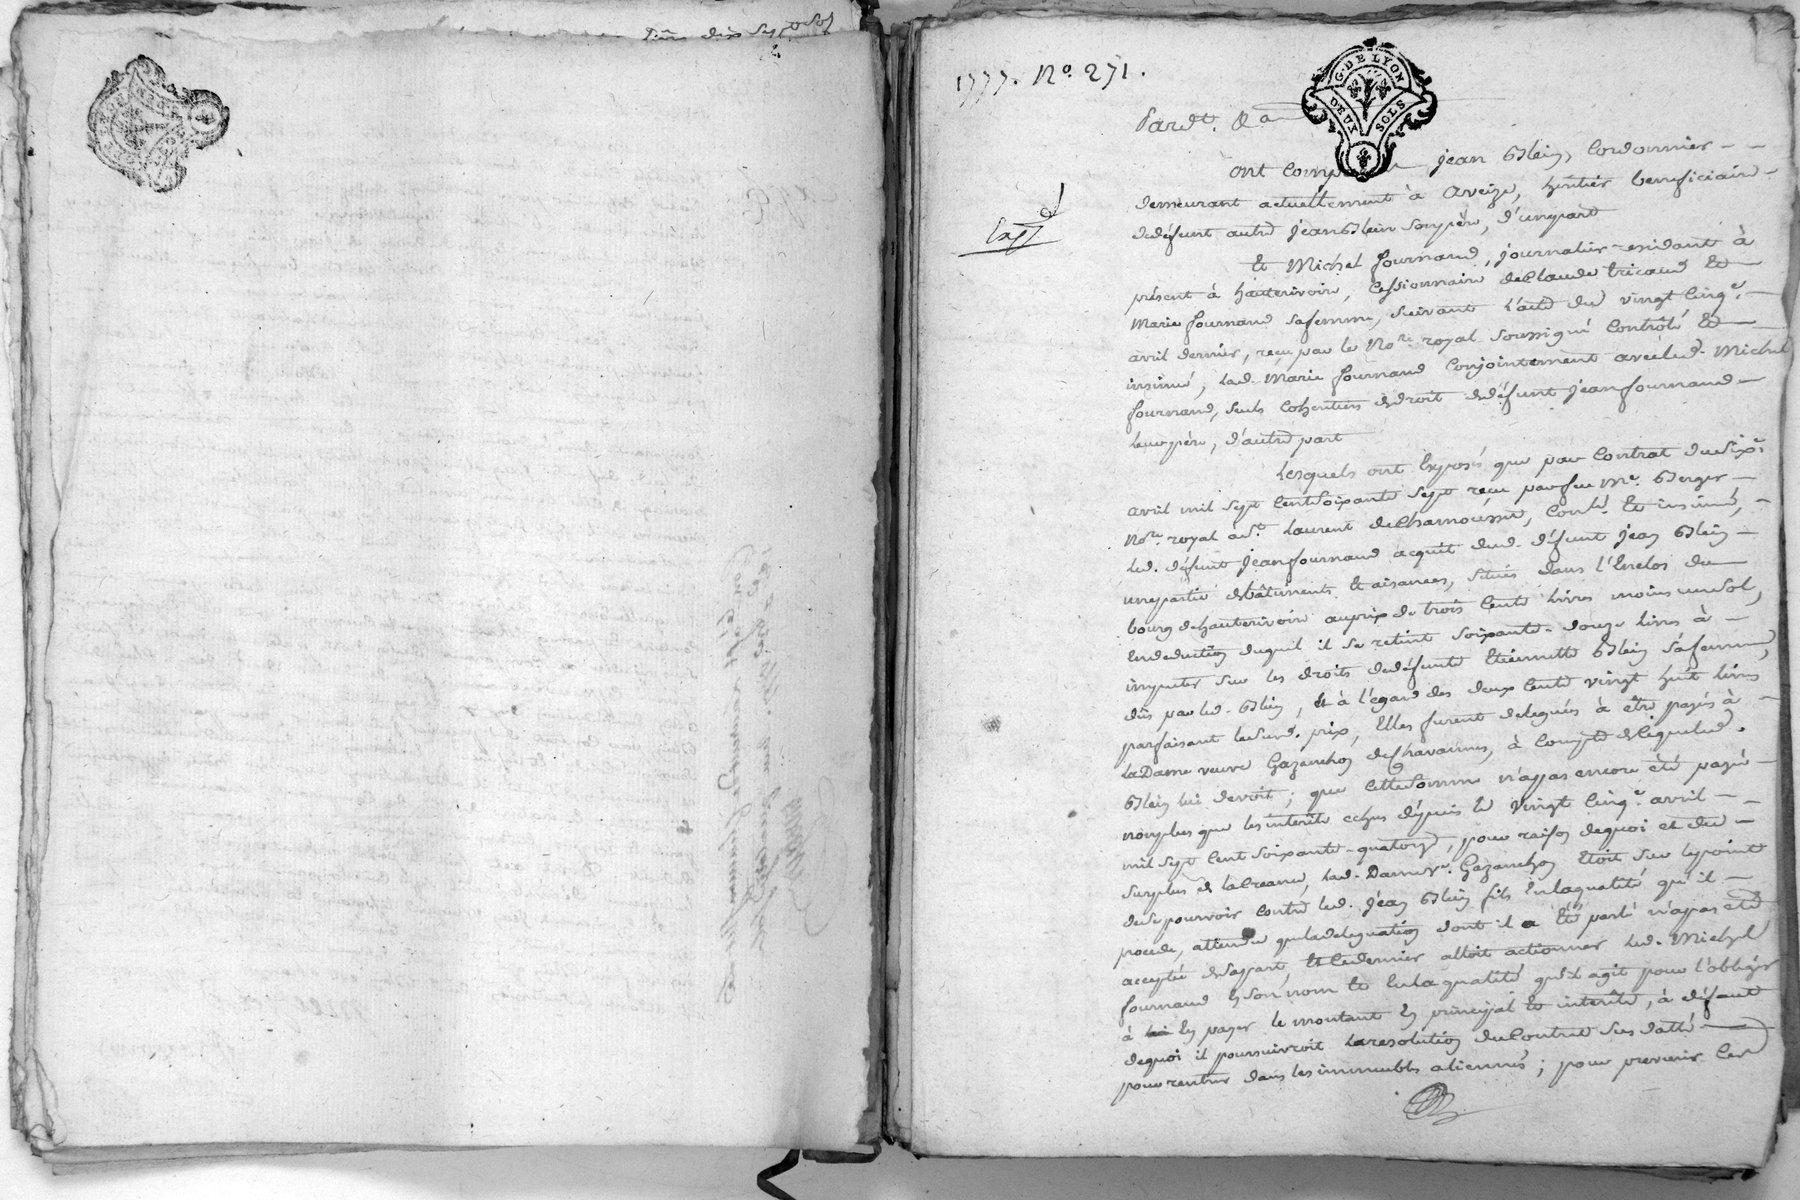 dix sept sols
1777. No. 271.
G. DE LYON
DEUX SOLS
Pardt. &a
ont comparu jean Blein, Cordonnier
demeurant actuellement à Aveize, heritier beneficiaire
de défunt autre jean Blein son père, d'une part
Exp
Et Michel fournand, journalier residant à
présent à hauterivoire, Cessionnaire de Claude tricaud et
Marie fournand sa femme, suivant l'acte du vingt cinq.e
avril dernier, reçu par le No.re royal soussigné Contrôlé et
insinué, lad. Marie fournand Conjointement avec led. Michel
fournand, seuls Cohéritiers de droit de défunt jean fournand
leur père, d'autre part
Lesquels ont Exposé que par Contrat du six.e
avril mil sept Cent soixante sept reçu par feu M.e Berger
No.re royal a St. Laurent de Chamousset, Con.lé et insinué,
led. défunt jean fournand acquit dud. défunt jean Blein
une partie de bâtiments et aisances, situés dans l'Enclos du
bourg de hauterivoire au prix de trois Cents livres moins un sol,
En deduction duquel il se retint soixante-douze livres à
imputer sur les droits de défunte Etiennette Blein sa femme,
dûs par led. Blein, et à l'égard des deux Cents vingt huit livres
parfaisant le susd. prix, Elles furent deleguées à être payés à
la Dame veuve Gazanchon de Chavannes, à Compte de ce que led.
Blein lui devoit; que cette somme n'a pas encore été payée
non plus que les intérêts echus depuis le vingt cinq.e avril
mil sept Cent soixante-quatorze, pour raison de quoi et du
surplus de la Creance, lad. Dame v.e Gazanchon Etoit sur le point
de se pourvoir contre led. jean Blein fils En la qualité qu'il
procede, attendu que la delegation dont il a Eté parlé n'a pas eté
acceptée de sa part, Et ce dernier alloit actionner led. Michel
fournand En son nom Et En la qualité qu'il agit pour l'obliger
à En payer le montant En principal Et intérêts, à défaut
de quoi il poursuivroit la resolution du Contrat sus datté
pour rentrer dans les immeubles aliennés; pour prevenir Ces